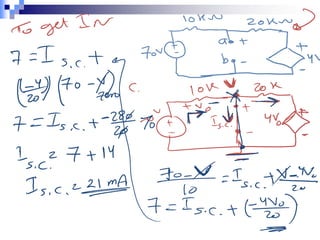 To get IN
7 = I s.c. +
(-4/20) (70 - V) zero
7 = I s.c. + -280/20
I s.c. = 7 + 14
I s.c. = 21 mA
10KΩ 20KΩ
70V a + b - + - 4V
c.
10K V 20K
70 + Vo - I s.c. + - 4Vo
(70 - V)/10 = I s.c. + (V - 4Vo)/20
7 = I s.c. + (-4Vo/20)